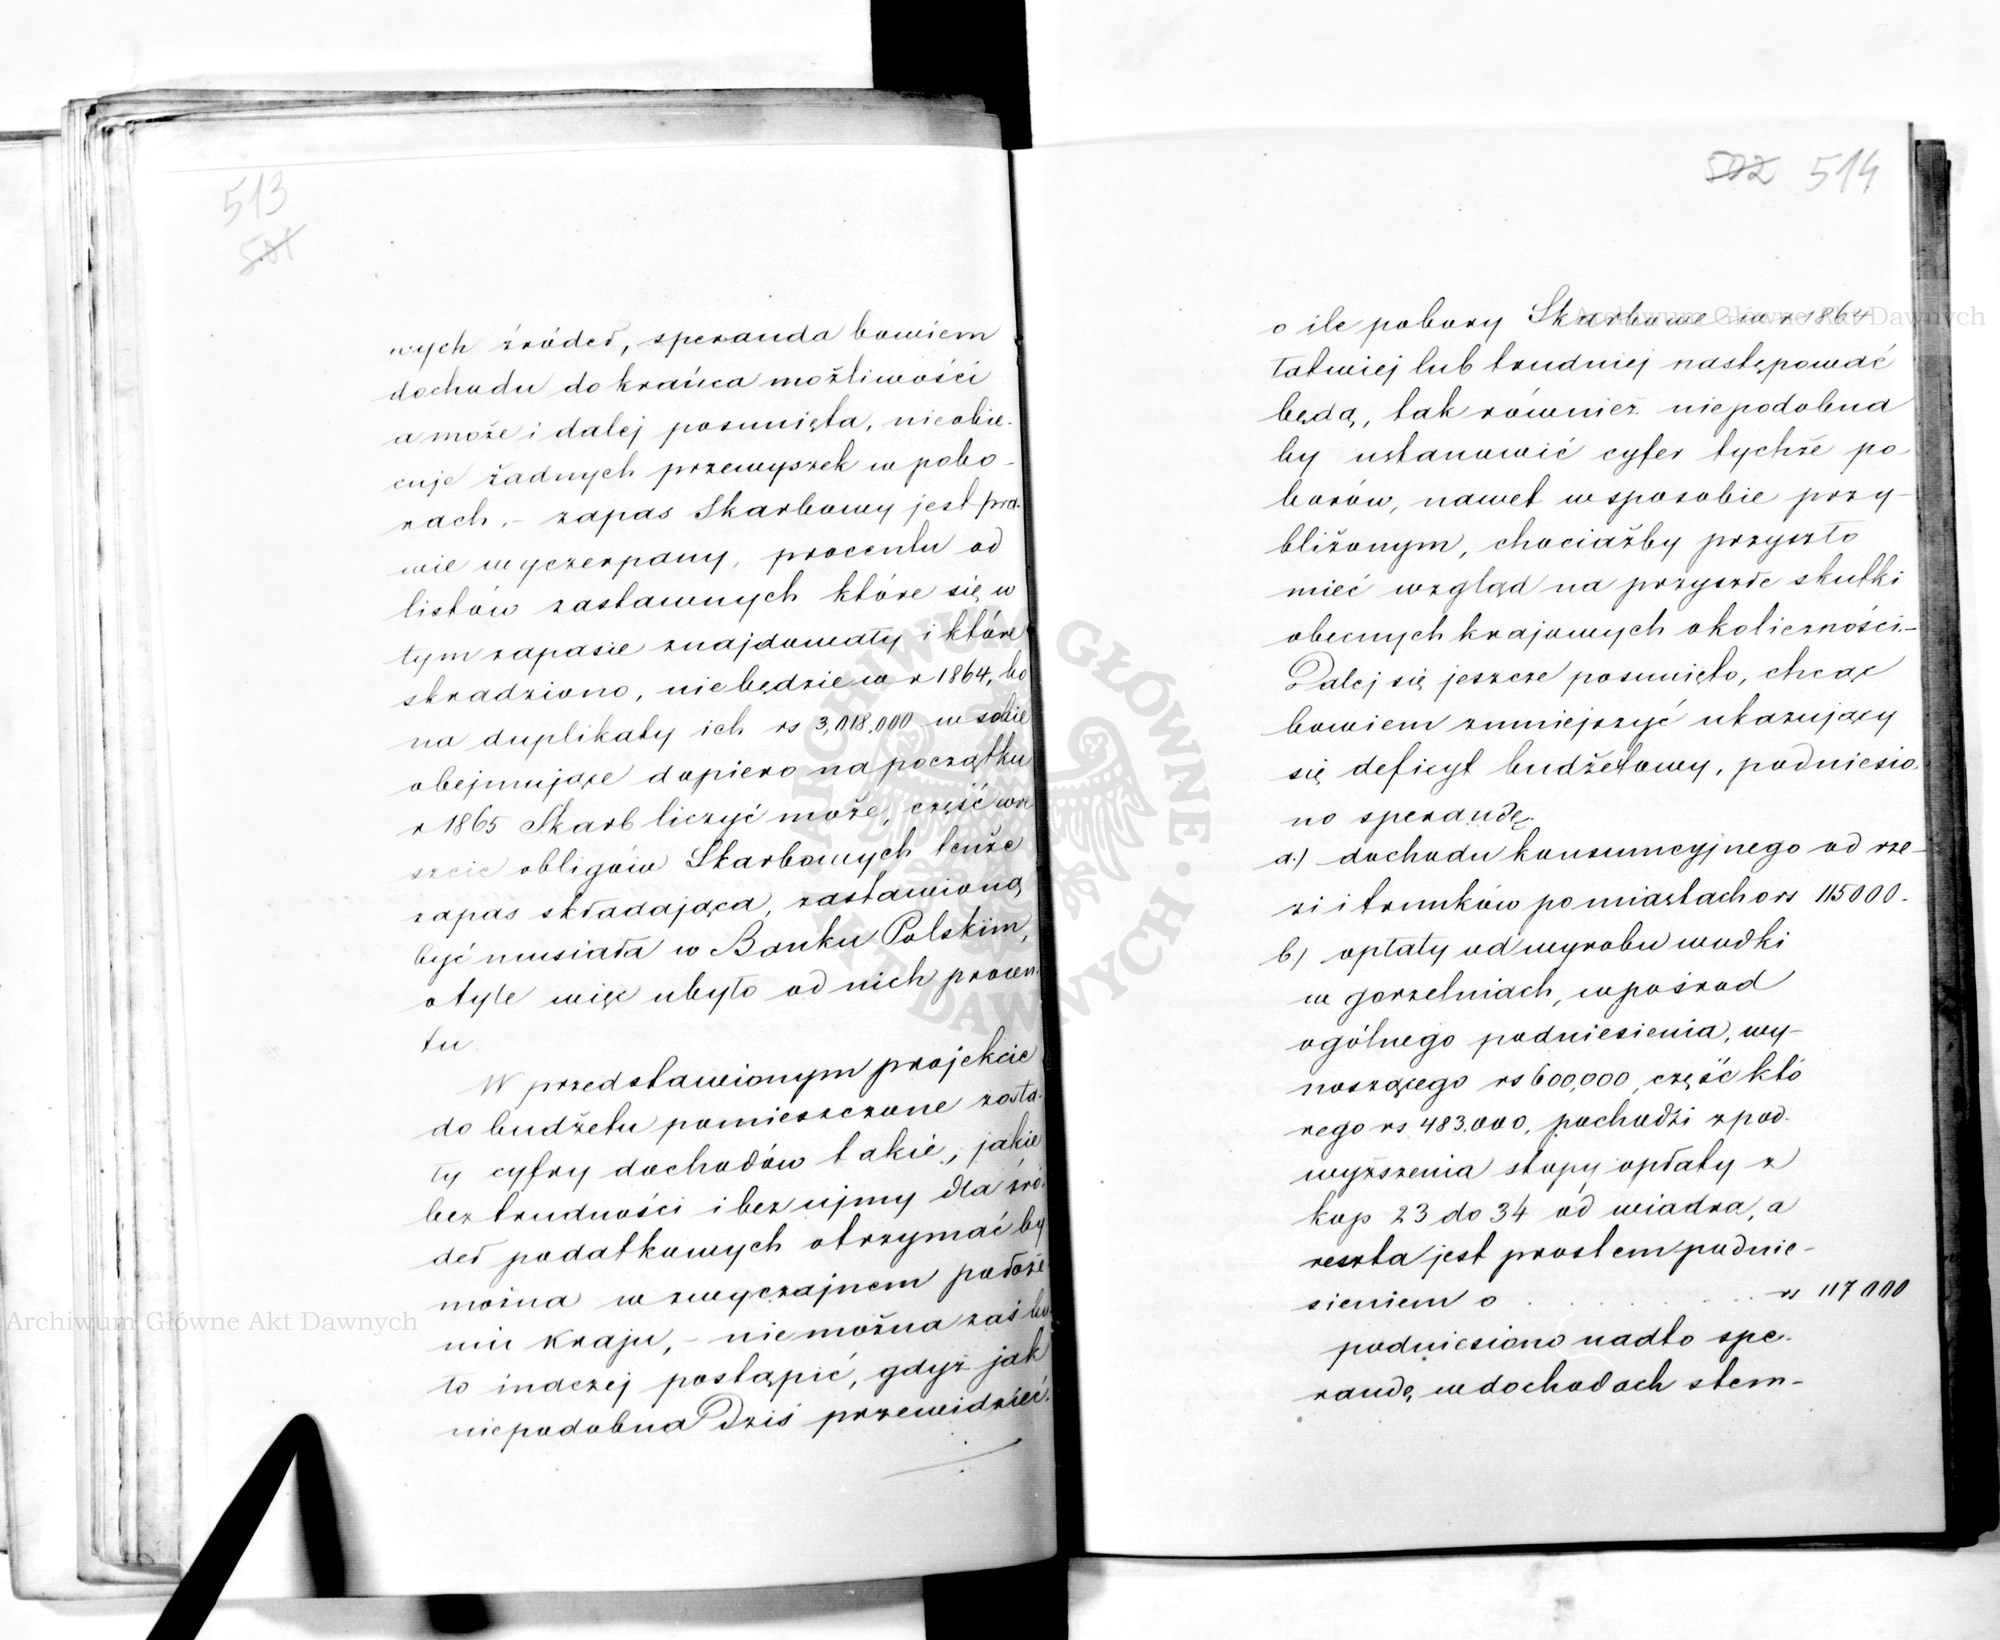 513
501
wych źródeł, speranda bowiem
dochodu do krańca możliwości
a może i dalej posunięta, nie obie-
cuje żadnych przewyszek w pobo-
rach. – zapas Skarbowy jest pra-
wie wyczerpany, procentu od
listów zastawnych które się w
tym zapasie znajdowały i które
skradziono, nie będzie w r 1864, bo
na duplikaty ich rs 3,018,000 w sobie
obejmujące dopiero na początku
r 1865 Skarb liczyć może, część wre
szcie obligów Skarbowych tenże
zapas składająca, zastawioną
być musiała w Banku Polskim,
o tyle więc ubyło od nich procen-
tu
W przedstawionym projekcie
do budżetu pomieszczone zosta-
ły cyfry dochodów takie, jakie
bez trudności i bez ujmy dla źró-
deł podatkowych otrzymać by
można w zwyczajnem położe-
niu kraju, – nie można zaś by-
ło inaczej postąpić, gdyż jak
niepodobna dziś przewidzieć
502 514
o ile pobory Skarbowe w r 1864
łatwiej lub trudniej następować
będą, tak również niepodobna
by ustanowić cyfer tychże po-
borów, nawet w sposobie przy-
bliżonym, chociażby przyszło
mieć wzgląd na przyszłe skutki
obecnych krajowych okoliczności. –
Dalej się jeszcze posunięto, chcąc
bowiem zmniejszyć ukazujący
się deficyt budżetowy, podniesio-
no sperandę.
a.) dochodu konsumcyjnego od rze-
zi i trunków po miastach o rs 115000.
b) opłaty od wyrobu wodki
w gorzelniach, w pośrod
ogólnego podniesienia, wy-
noszącego rs 600,000, część któ
rego rs 483.000, pochodzi z pod-
wyższenia stopy opłaty z
kop 23 do 34 od wiadra, a
reszta jest prostem podnie-
sieniem o . . . . . . rs 117000
podniesiono nadto spe-
randę w dochodach stem-
Archiwum Główne Akt Dawnych
Archiwum Główne Akt Dawnych
ARCHIWUM GŁÓWNE · AKT DAWNYCH ·